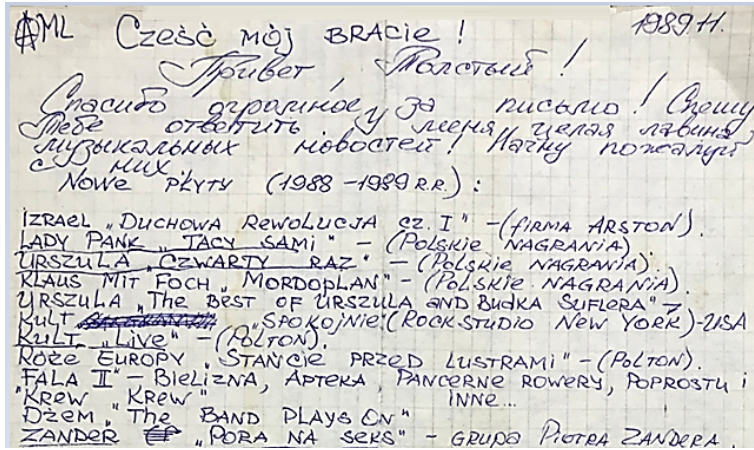 AML Cześć mój bracie! 1989 H.
Привет Толстый!
Спасибо огромное за письмо! Спешу
Тебе ответить. У меня целая лавина
музыкальных новостей! Начну пожалуй
с них.
Nowe płyty (1988-1989 r.r.):
Izrael „Duchowa Rewolucja cz. I" - (firma ARSTON).
Lady Pank „Tacy sami" - (Polskie Nagrania)
Urszula „Czwarty raz" - (Polskie Nagrania).
Klaus Mit Foch „Mordoplan" - (Polskie Nagrania).
Urszula „The Best of Urszula and Budka Suflera"
Kult „Spokojnie" (Rock Studio New York) - USA
Kult „Live" - (Polton).
Róże Europy „Stańcie przed lustrami" - (Polton).
„Fala II" - Bielizna, Apteka, Pancerne Rowery, Poprostu i
„Krew Krew" inne...
Dżem „The Band Plays On"
Zander „Pora na seks" - grupa Piotra Zandera.